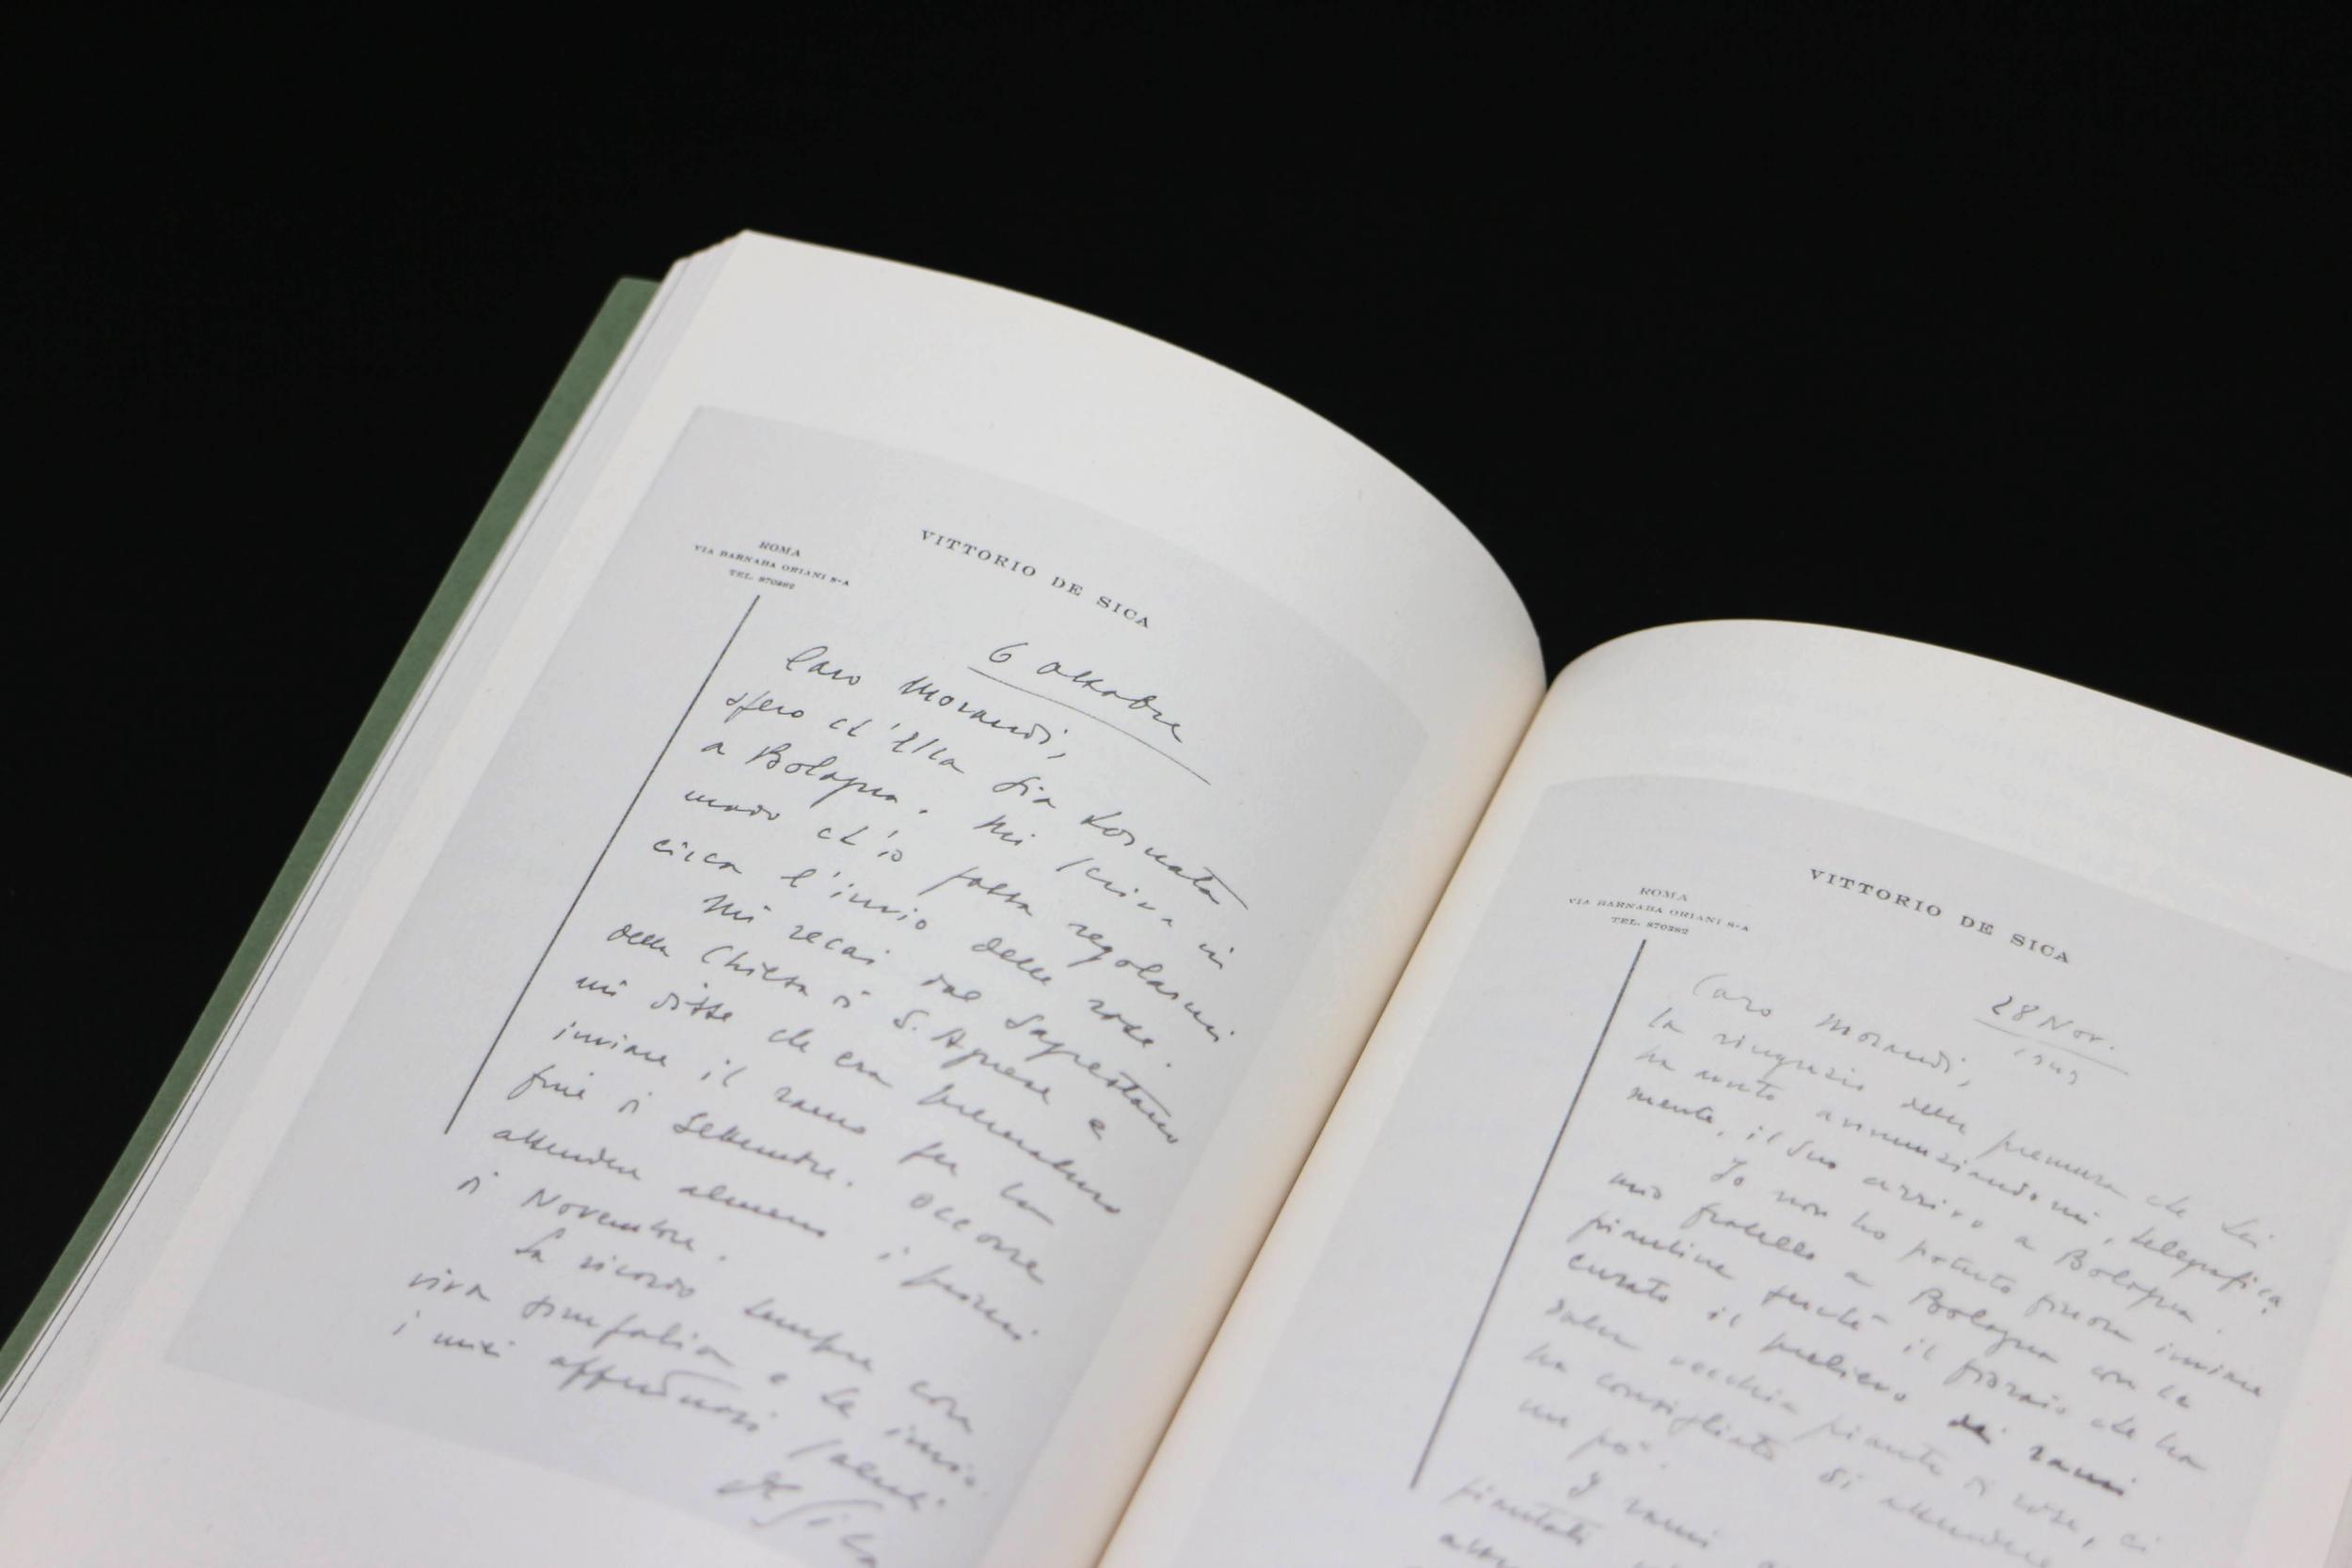 VITTORIO DE SICA
ROMA
VIA BARNABA ORIANI 8-A
TEL. 870282
6 ottobre
Caro Morandi,
spero ch'Ella sia tornata
a Bologna. Mi scriva in
modo ch'io possa regolarmi
circa l'invio delle rose.
Mi recai dal Sagrestano
della Chiesa di S. Agnese e
mi disse che era prematuro
inviare il ramo per la
fine di Settembre. Occorre
attendere almeno i primi
di Novembre.
La ricordo sempre con
viva simpatia e Le invio
i miei affettuosi saluti
De Sica
VITTORIO DE SICA
ROMA
VIA BARNABA ORIANI 8-A
TEL. 870282
28 Nov.
1949
Caro Morandi,
La ringrazio della premura che Lei
ha avuto annunziandomi, telegrafica
mente, il Suo arrivo a Bologna.
Io non ho potuto finora inviare
mio fratello a Bologna con le
piantine perché il fioraio che ha
curato il prelievo dei rami
dalla vecchia pianta di rose, ci
ha consigliato di attendere
un po'.
I rami
piantati